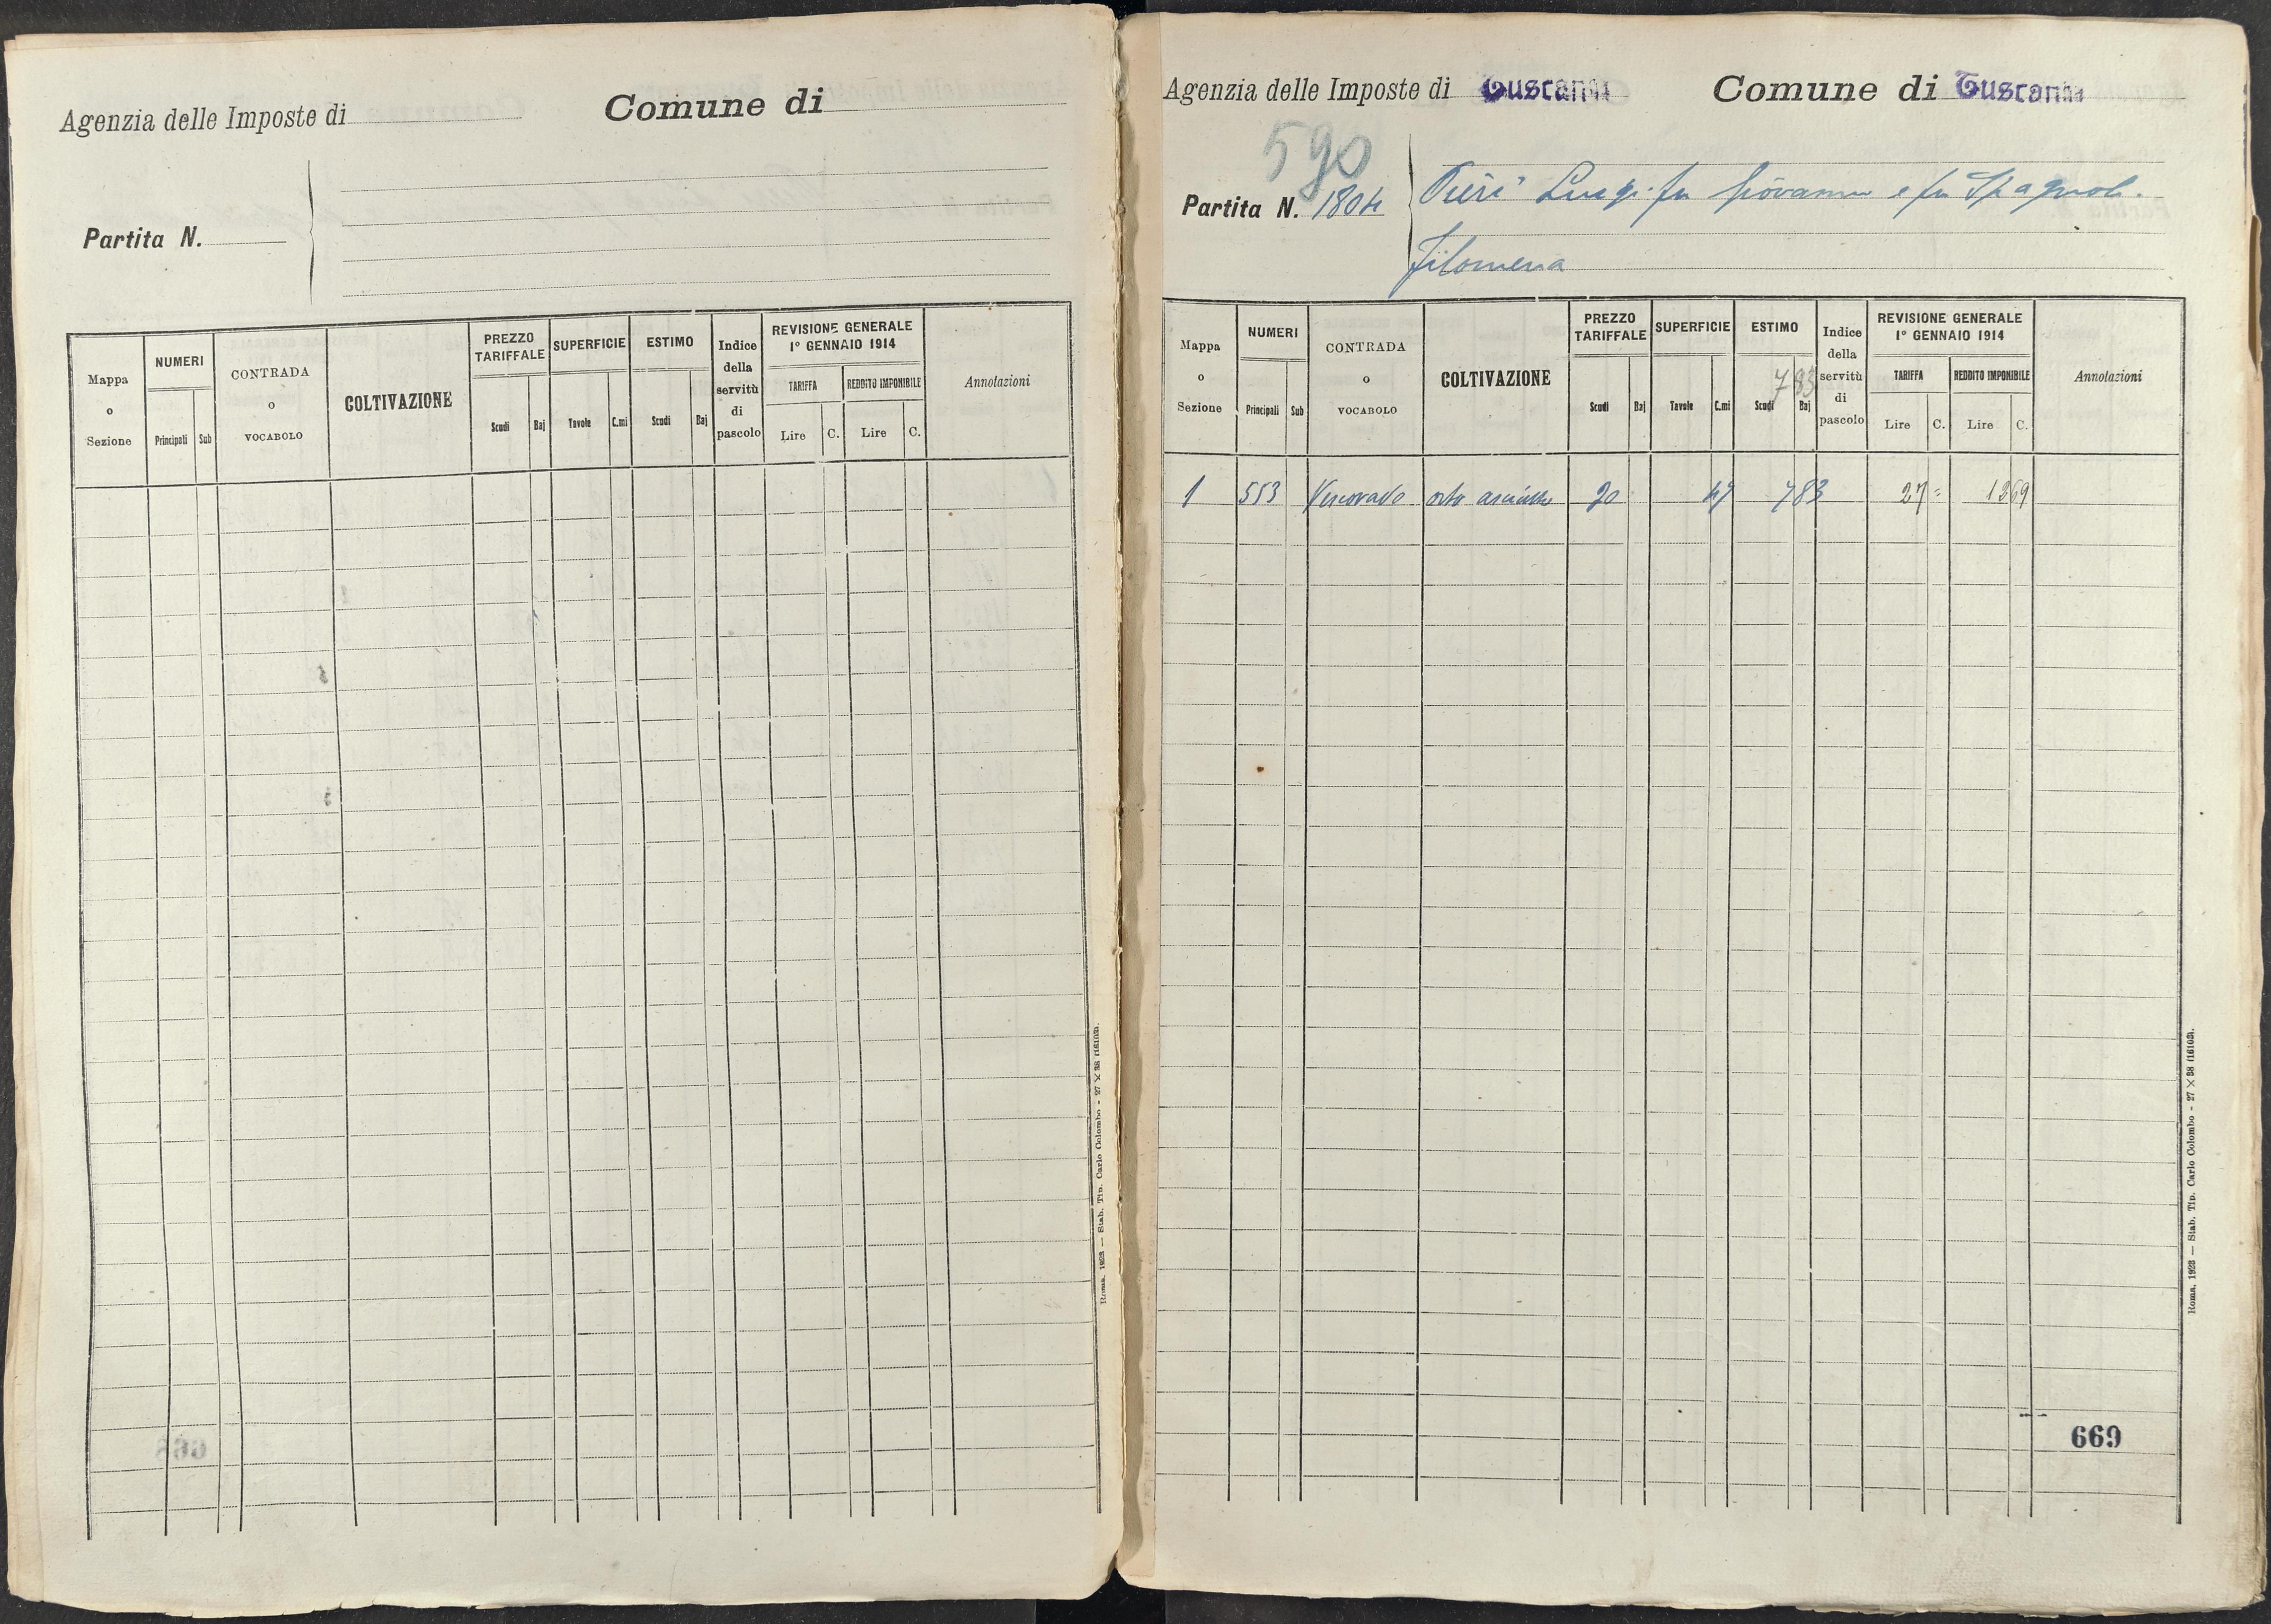 Agenzia delle Imposte di
Comune di
Partita N.
Mappa o Sezione
NUMERI
Principali Sub
CONTRADA O VOCABOLO
COLTIVAZIONE
PREZZO TARIFFALE
Scudi Baj
SUPERFICIE
Tavole C.mi
ESTIMO
Scudi Baj
Indice della servitù di pascolo
REVISIONE GENERALE
1° GENNAIO 1914
TARIFFA
Lire C.
REDDITO IMPONIBILE
Lire C.
Annotazioni
Roma, 1923 — Stab. Tip. Carlo Colombo - 27 × 38 (16103).
Agenzia delle Imposte di Tuscania
Comune di Tuscania
590
Partita N. 1804
Pieri Luigi fu Giovanni e fu Spagnoli
Filomena
Mappa o Sezione
NUMERI
Principali Sub
CONTRADA O VOCABOLO
COLTIVAZIONE
PREZZO TARIFFALE
Scudi Baj
SUPERFICIE
Tavole C.mi
ESTIMO
783
Scudi Baj
Indice della servitù di pascolo
REVISIONE GENERALE
1° GENNAIO 1914
TARIFFA
Lire C.
REDDITO IMPONIBILE
Lire C.
Annotazioni
1 553 Vescovado orto asciutto 20 47 783 27 = 1269
Roma, 1923 — Stab. Tip. Carlo Colombo - 27 × 38 (16103).
669